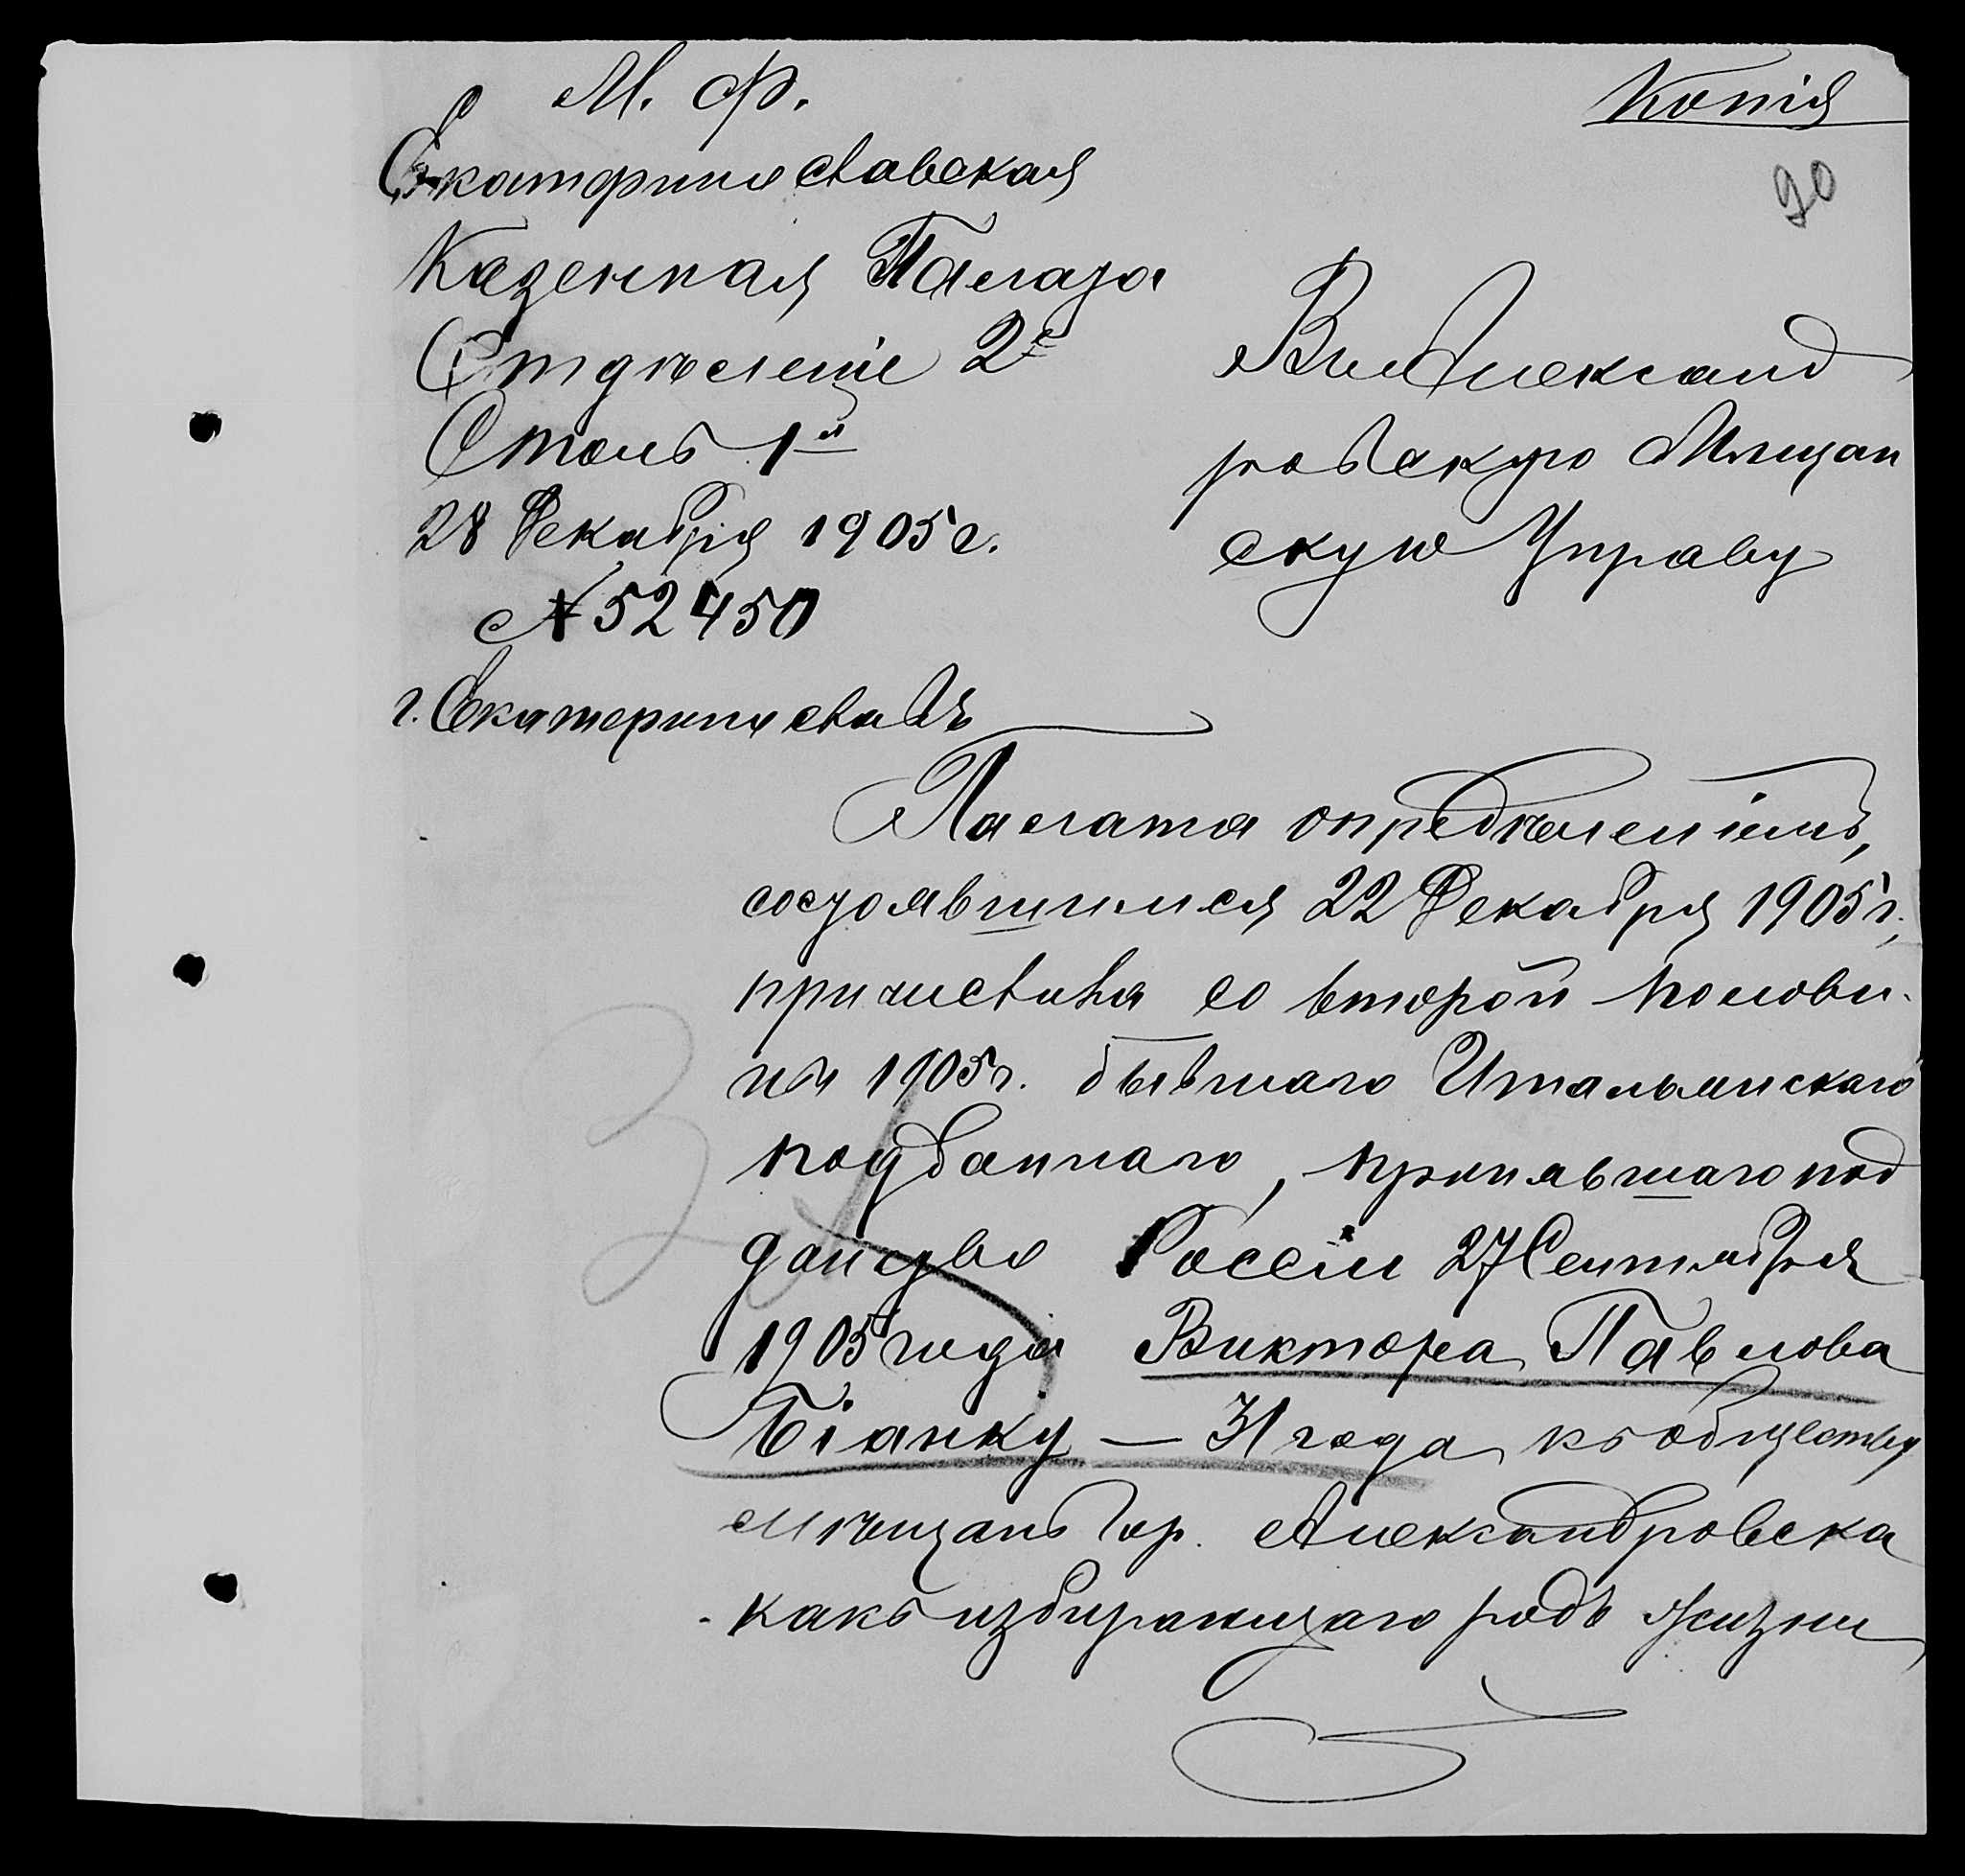 М. Ф.
Копія
20
Екатеринославская
Казенная Палата
Отдѣленіе 2е
Столъ 1й
28 Декабря 1905 г.
№ 52450
г. Екатеринославъ
Въ Александ
ровскую Мѣщан
скую Управу
Палата опредѣленіемъ,
состоявшимся 22 Декабря 1905 г.,
причислила со второй полови-
ны 1905 г. бывшаго Итальянскаго
подданнаго, принявшаго под
данство Россіи 27 Сентября
1905 года Виктора Павлова
Біанку — 31 года къ обществу
мѣщанъ гор. Александровска
какъ избирающаго родъ жизни